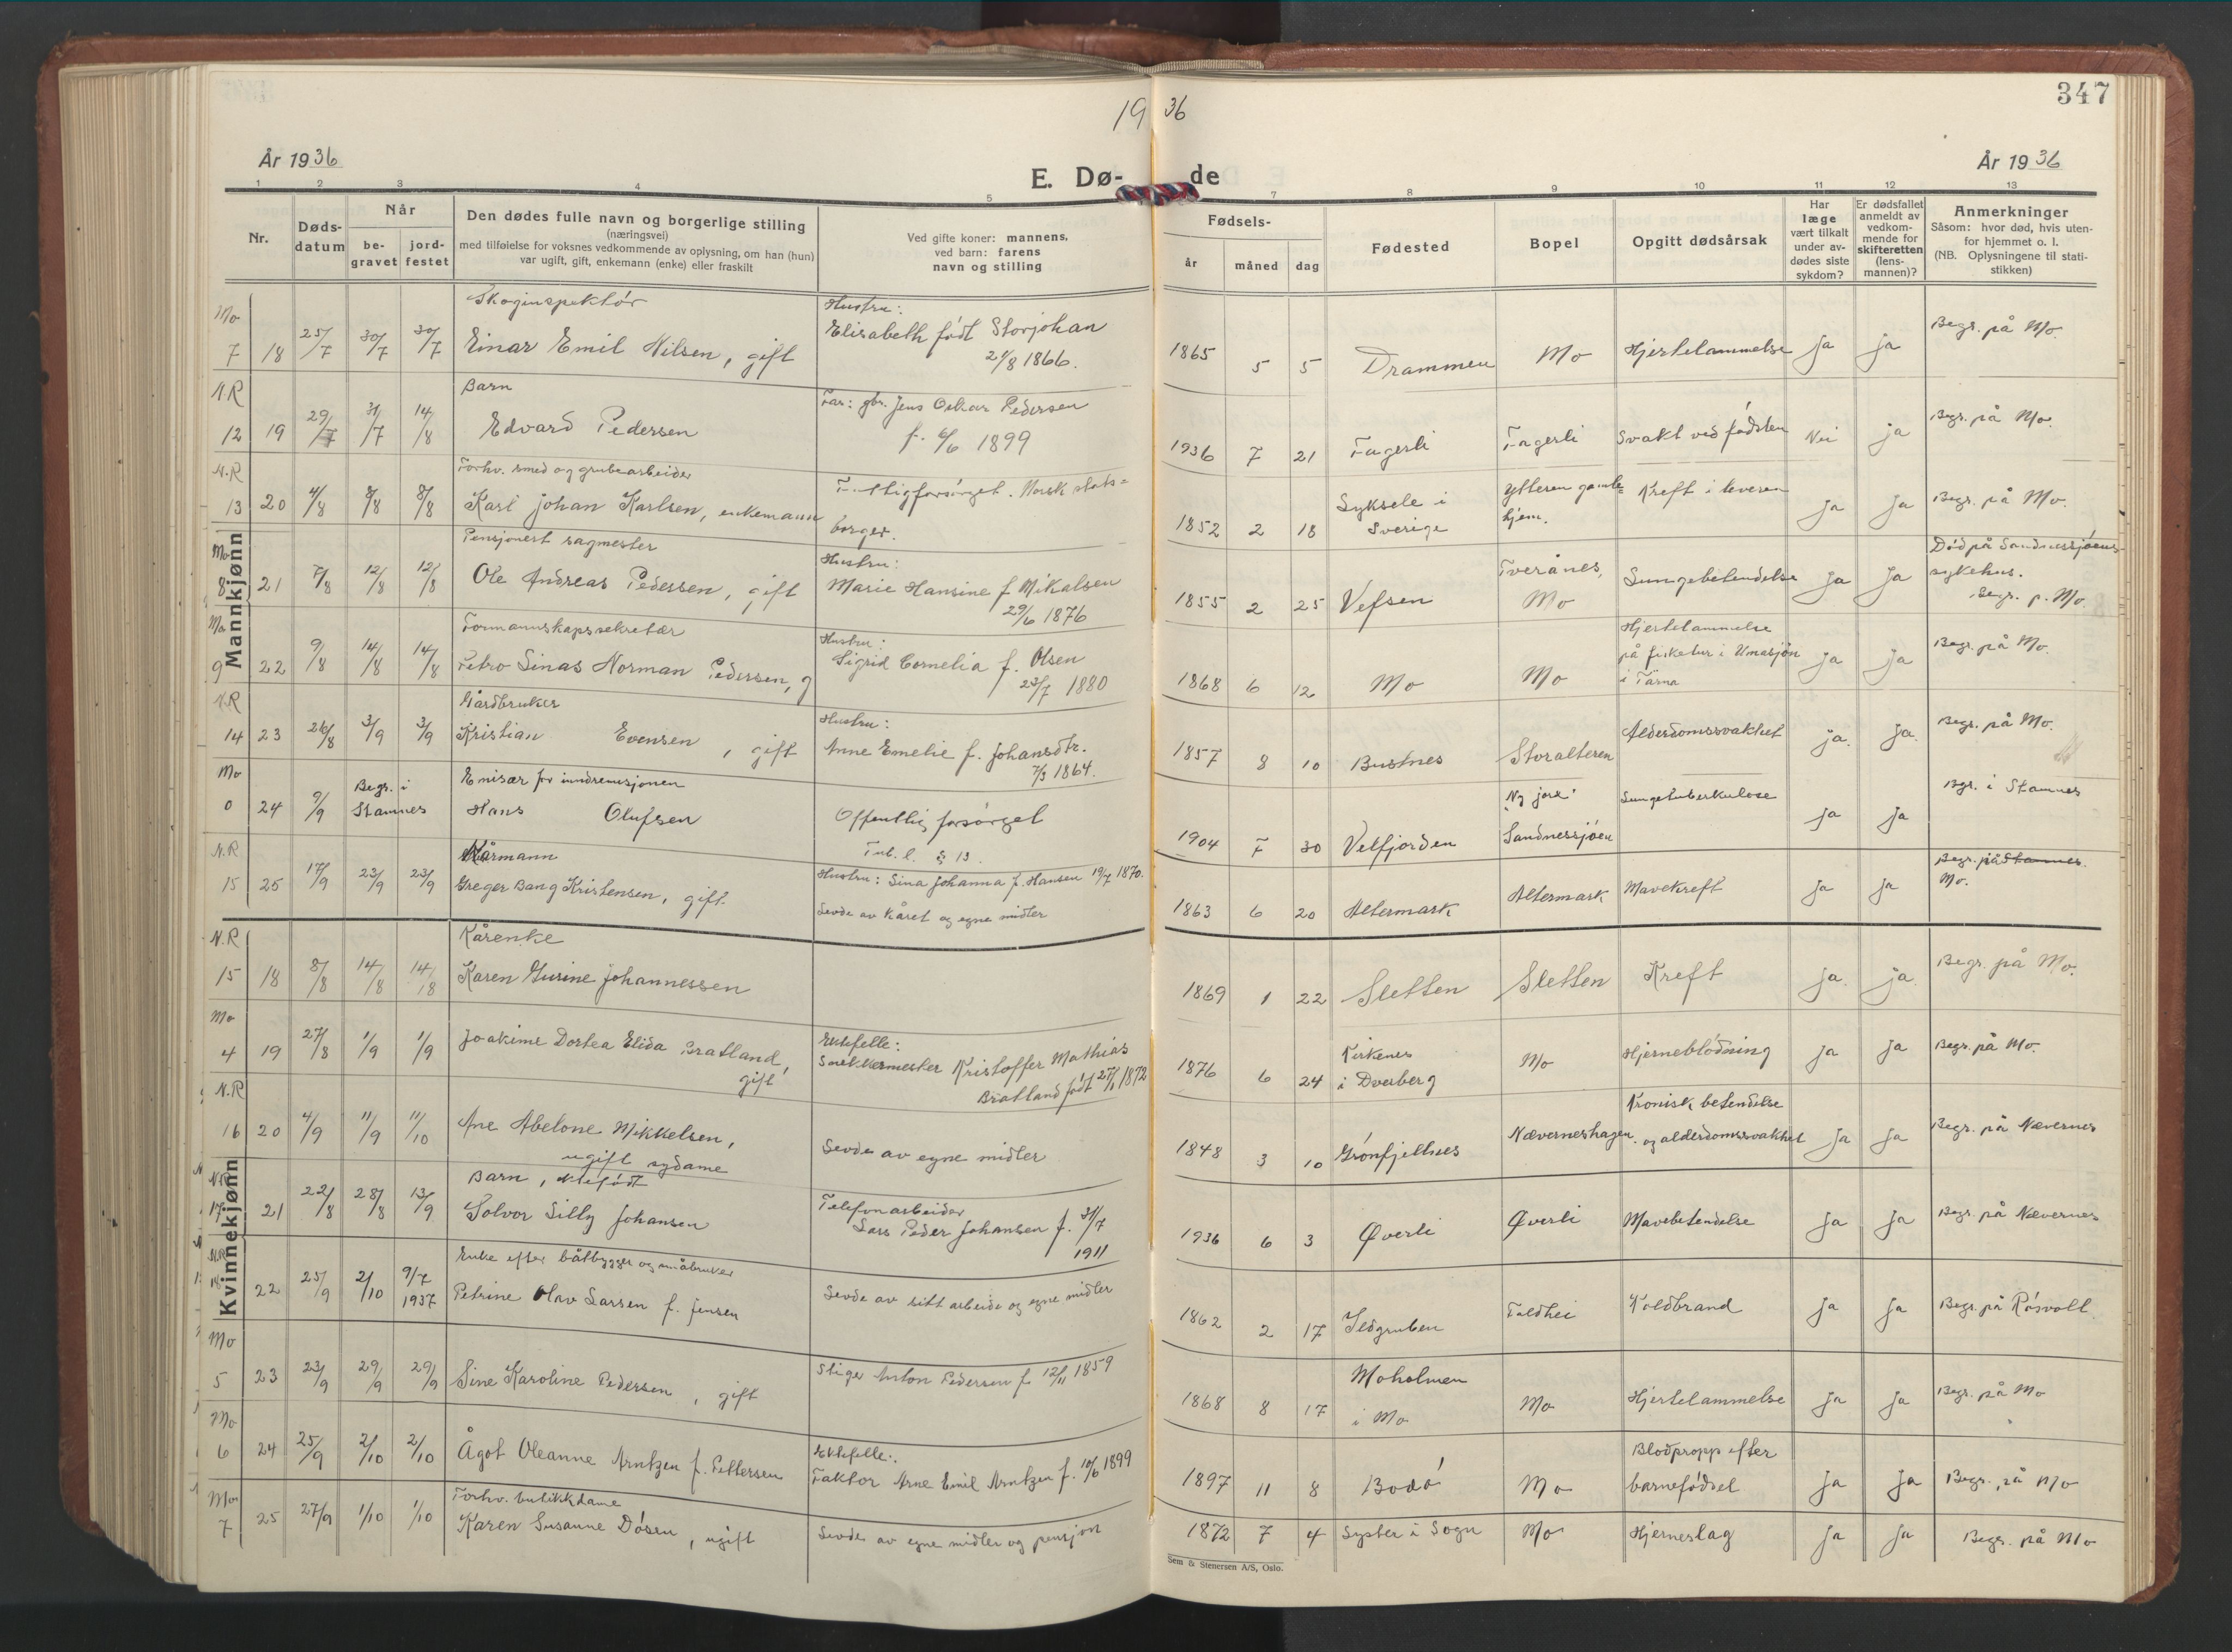 347
19 36
År 1936
E. Dø- de
År 1936
1 2 3 4 5 7 8 9 10 11 12 13
Nr.
Døds-
datum
Når
be-
gravet
jord-
festet
Den dødes fulle navn og borgerlige stilling
(næringsvei)
med tilføielse for voksnes vedkommende av oplysning, om han (hun)
var ugift, gift, enkemann (enke) eller fraskilt
Ved gifte koner: mannens,
ved barn: farens
navn og stilling
Fødsels-
år måned dag
Fødested
Bopel
Opgitt dødsårsak
Har
læge
vært tilkalt
under av-
dødes siste
sykdom?
Er dødsfallet
anmeldt av
vedkom-
mende for
skifteretten
(lens-
mannen)?
Anmerkninger
Såsom: hvor død, hvis uten-
for hjemmet o. l.
(NB. Oplysningene til stati-
stikken)
Mannkjønn
Mo Skoginspektør Hustru:
7 18 25/7 30/7 30/7 Einar Emil Nilsen, gift Elisabeth født Storjohan
2/8 1866.
1865 5 5 Drammen Mo Hjertelammelse Ja Ja Begr. på Mo.
N.R Barn Far: gbr. Jens Oskar Pedersen
12 19 29/7 31/7 14/8 Edvard Pedersen f. 6/6 1899
1936 7 21 Fagerli Fagerli Svakt ved fødslen Nei Ja Begr. på Mo.
N.R Forhv. smed og grubearbeider
13 20 4/8 8/8 8/8 Karl Johan Karlsen, enkemann Fattigforsørget. Norsk stats=
borger.
1852 2 18 Lyksele i
Sverige Ytteren gamle=
hjem. Kreft i leveren Ja Ja Begr. på Mo.
Mo Pensjonert sagmester Hustru:
8 21 7/8 12/8 12/8 Ole Andreas Pedersen, gift Marie Hansine f Mikalsen
29/6 1876
1855 2 25 Vefsen Tverånes,
Mo Lungebetendelse Ja Ja Død på Sandnessjøens
sykehus.
Begr. p. Mo.
Mo Formannskapssekretær Hustru:
9 22 9/8 14/8 14/8 Petro Linas Norman Pedersen, g Sigrid Cornelia f. Olsen
23/7 1880
1868 6 12 Mo Mo Hjertelammelse
på fisketur i Umasjøn
i Tärna Ja Ja Begr. på Mo.
N.R Gårdbruker Hustru:
14 23 26/8 3/9 3/9 Kristian Evensen, gift Anne Emelie f. Johansdtr.
7/3 1864.
1857 8 10 Bustnes Storalteren Alderdomssvakhet Ja. Ja. Begr. på Mo.
Mo Begr. i
Stamnes Emisær for inndremisjonen
0 24 9/9 Hans Olufsen Offentlig forsørget
Tub. l. § 13.
1904 7 30 Velfjorden "Ny jord"
Sandnessjøen Lungetuberkulose Ja Ja Bgr. i Stamnes
N.R Kårmann Hustru: Lina Johanna f. Hansen 19/7 1870.
15 25 17/9 23/9 23/9 Greger Bang Kristensen, gift. Levde av kåret og egne midler
1863 6 20 Altermark Altermark Mavekreft Ja Ja Begr. på Stamnes.
Mo.
Kvinnekjønn
N.R Kårenke
15 18 8/8 14/8 14/8 Karen Gurine Johannessen
1869 1 22 Sletten Sletten Kreft Ja. Ja. Begr. på Mo.
Mo Ektefelle:
4 19 27/8 1/9 1/9 Joakime Dortea Elida Bratland,
gift Snekkermester Kristoffer Mathias
Bratland født 27/1 1872
1876 6 24 Kirkenes
i Dverberg Mo Hjerneblødning Ja Ja Begr. på Mo.
N.R
16 20 4/9 11/9 11/10 Ane Abelone Mikkelsen,
ugift sydame Levde av egne midler
1848 3 10 Grønfjellnes Næverneshagen. Kronisk betendelse
og alderdomssvakhet Ja Ja Begr. på Nævernes
N.R Barn, ektefødt
17 21 22/8 28/8 13/9 Solvor Lilly Johansen Telefonarbeider
Lars Peder Johansen f. 31/7
1911
1936 6 3 Øverli Øverli Mavebetendelse Ja Ja Begr. på Nævernes
N.R Enke efter båtbygger og småbruker
18 22 25/9 2/10 9/7
1937 Petrine Olav Larsen f. Jensen Levde av sitt arbeide og egne midler
1862 2 17 Ildgruben Foldhei Koldbrand Ja Ja Begr. på Røsvoll
Mo
5 23 23/9 29/9 29/9 Line Karoline Pedersen, gift Stiger Anton Pedersen f. 12/11 1859
1868 8 17 Moholmen
i Mo Mo Hjertelammelse Ja Ja Begr. på Mo
Mo Ektefelle:
6 24 25/9 2/10 2/10 Ågot Oleanne Arntzen f. Pettersen Faktor Arne Emil Arntzen f. 10/6 1899
1897 11 8 Bodø Mo Blodpropp efter
barnefødsel Ja Ja Begr. på Mo
Mo Forhv. butikkdame
7 25 27/9 1/10 1/10 Karen Susanne Døsen, ugift Levde av egne midler og pensjon
1872 7 4 Lyster i Sogn Mo Hjerneslag Ja Ja Begr. på Mo
Sem & Stenersen A/S, Oslo.